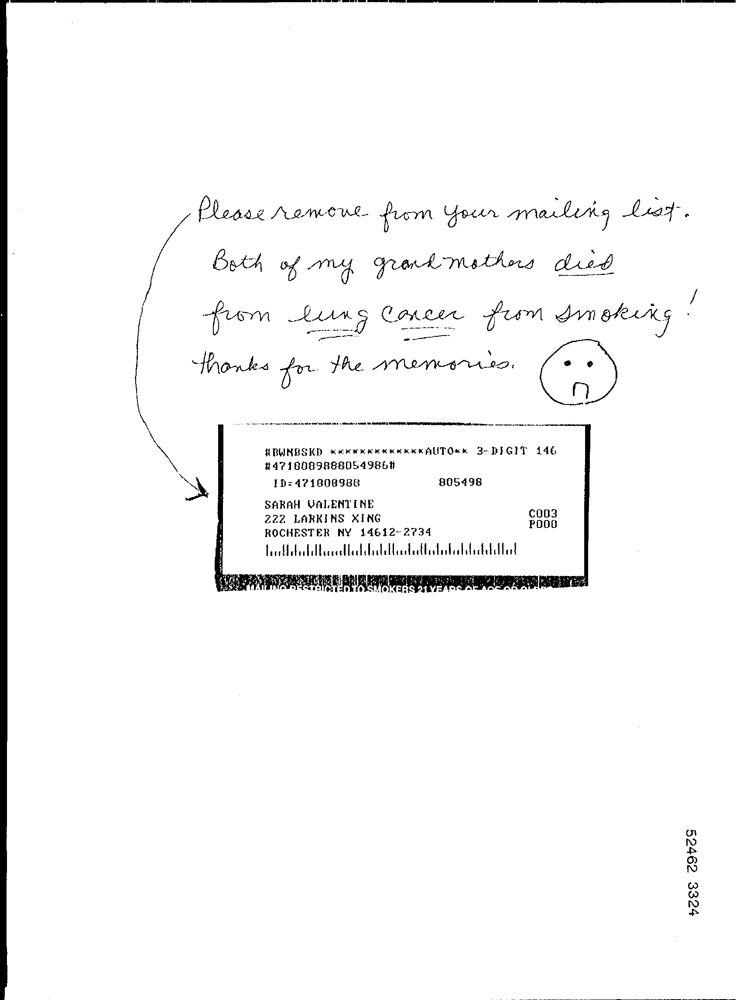 Please remove from your mailing list.
Both of my grandmothers died
from lung cancer from smoking!
thanks for the memories.
#BWNBSKD *************AUTO** 3-DIGIT 146
#4718089888054986#
ID=471808988 805498
SARAH VALENTINE
222 LARKINS XING C003
ROCHESTER NY 14612-2734 P000
MAILING RESTRICTED TO SMOKERS 21 YEARS OF AGE OR OLDER
52462 3324